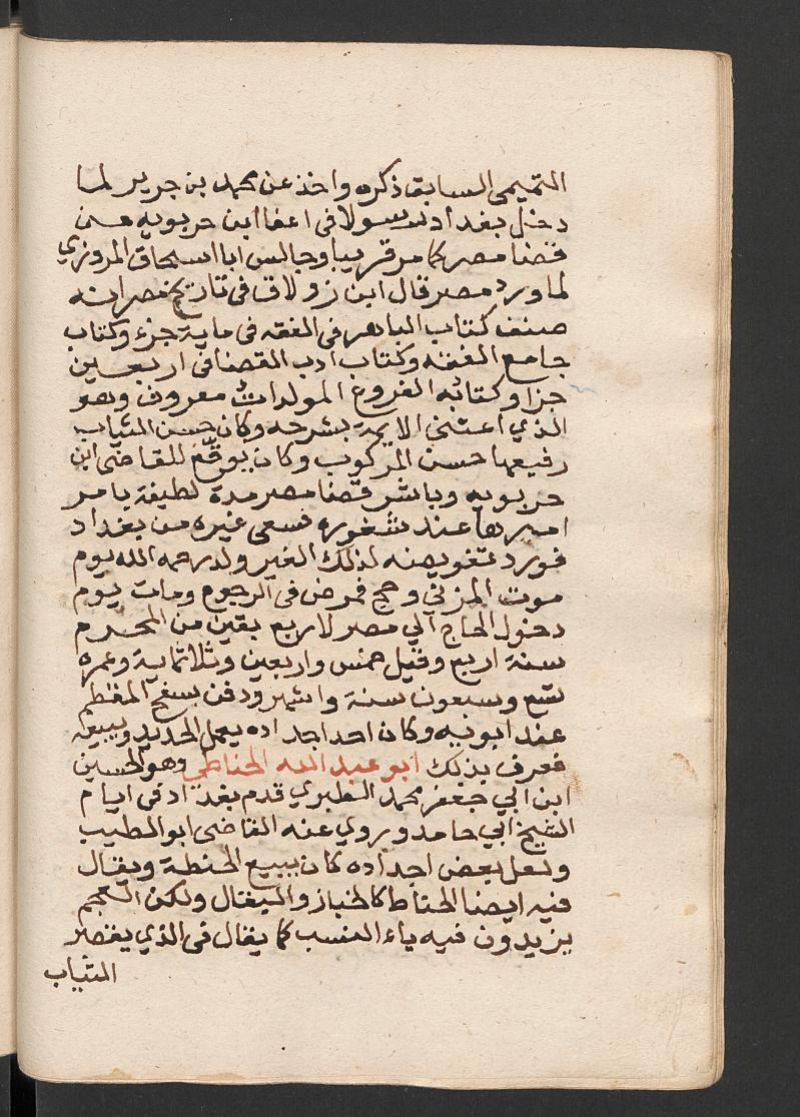 التميمى السابق ذكره واخذ عن محمد بن جرير لما
دخل بغداد رسولا فى اعفا ابن حربويه من
قضا مصر كما مر قريبا وجالس ابا اسحاق المروزي
لما ورد مصر قال ابن زولاق فى تاريخ مصر انه
صنف كتاب الباهر فى الفقه فى ماية جزء وكتاب
جامع الفقه وكتاب ادب القضا فى اربعين
جزا وكتابه الفروع المولدات معروف وهو
الذي اعتنى الايمة بشرحه وكان حسن الثياب
رفيعها حسن المركوب وكان يوقع للقاضى ابن
حربويه وباشر قضا مصر مدة لطيفة بامر
اميرها عند شغوره فسعى غيره من بغداد
فورد تفويضه لذلك الغير ولد رحمه الله يوم
موت المزني وحج فمرض فى الرجوع ومات يوم
دخول الحاج الي مصر لاربع بقين من المحرم
سنة اربع وقيل خمس واربعين وثلاثماية وعمره
تسع وسبعون سنة واشهر ودفن بسفح المقطم
عند ابويه وكان احد اجداده يعمل الحديد ويبيعه
فعرف بذلك ابو عبد الله الحناطي وهو الحسين
ابن ابي جعفر محمد الطبري قدم بغداد فى ايام
الشيخ ابي حامد وروي عنه القاضى ابو الطيب
ولعل بعض اجداده كان يبيع الحنطة ويقال
فيه ايضا الحناط كالخباز والبقال ولكن العجم
يزيدون فيه ياء النسب كما يقال فى الذي يقصر
الثياب